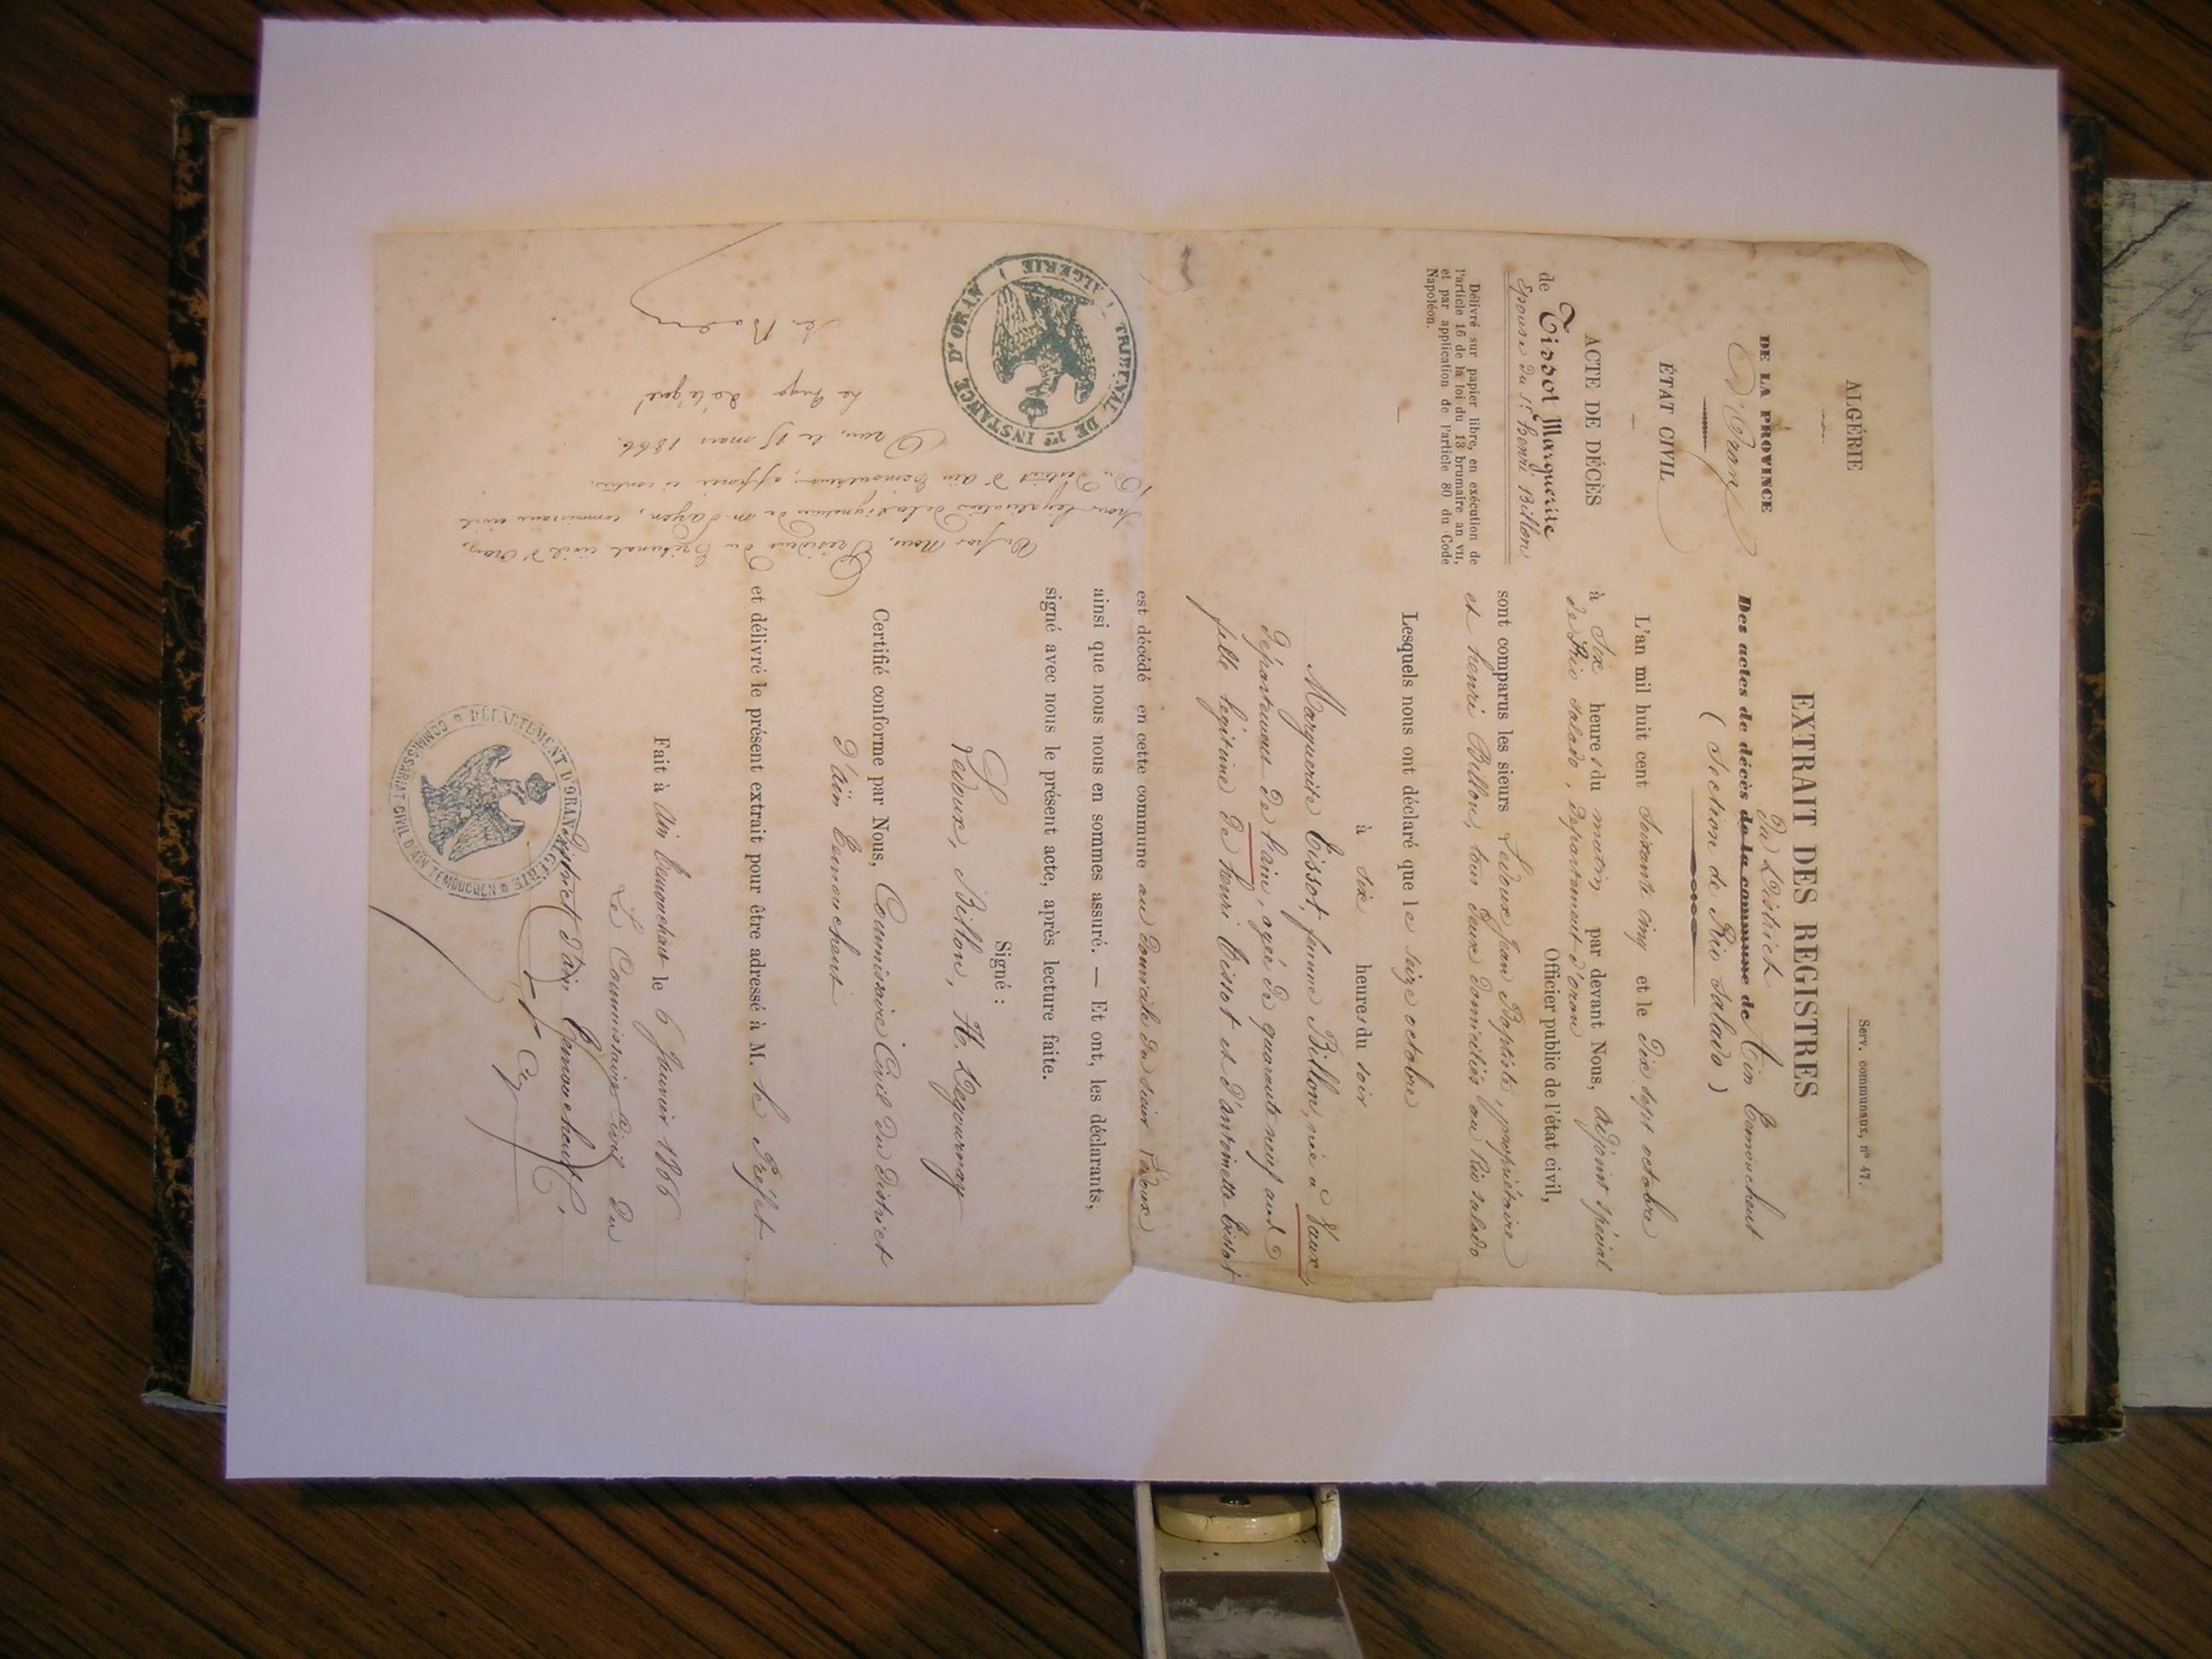 ALGÉRIE
DE LA PROVINCE
D'Oran
ÉTAT CIVIL
ACTE DE DÉCÈS
de Tissot Marguerite
épouse du Sr. henri Billon
Délivré sur papier libre, en exécution de
l'article 16 de la loi du 13 brumaire an VII,
et par application de l'article 80 du Code
Napoléon.
Serv. communaux, n° 47.
EXTRAIT DES REGISTRES
du District
Des actes de décès de la commune de Ain Temouchent
(Section de Rio Salado)
L'an mil huit cent soixante cinq et le dix sept octobre
à six heures du matin par devant Nous, adjoint spécial
de Rio Salado, département d'oran
Officier public de l'état civil,
sont comparus les sieurs Ledoux jean Baptiste, propriétaire
et henri Billon, tous deux domiciliés au Rio Salado
Lesquels nous ont déclaré que le seize octobre
à six heures du soir
Marguerite Tissot, femme Billon, née à Vaux
département de l'ain, agée de quarante neuf ans
fille légitime de henri Tissot et d'antoinette Tissot
est décédé en cette commune au domicile du sieur Ledoux
ainsi que nous nous en sommes assuré. — Et ont, les déclarants,
signé avec nous le présent acte, après lecture faite.
Signé :
Ledoux, Billon, H. Degournay
Certifié conforme par Nous, Commissaire Civil du District
d'aïn Temouchent
et délivré le présent extrait pour être adressé à M. le Préfet
Fait à Ain Temouchent le 6 janvier 1866
Le Commissaire Civil du
District d'ain Temouchent,
DÉPARTEMENT D'ORAN ALGÉRIE
COMMISSARIAT CIVIL D'AÏN TEMOUCHEN
Vu par Nous, Président du Tribunal civil d'Oran,
pour légalisation de la signature de M. Sayen, commissaire civil
du District d'aïn Temouchent, apposée ci contre.
Oran, le 15 mars 1866.
Le Juge délégué
TRIBUNAL DE 1re INSTANCE D'ORAN
ALGERIE